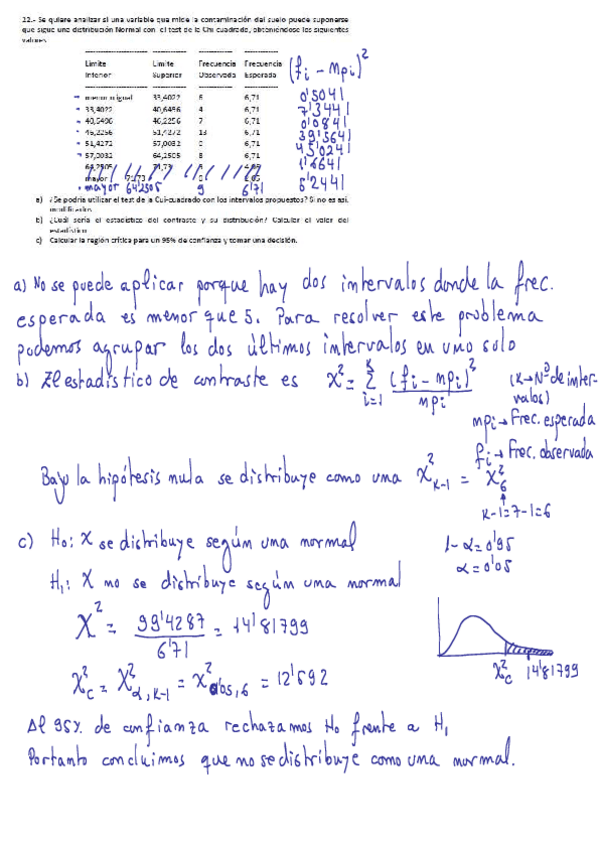 22.- Se quiere analizar si una variable que mide la contaminación del suelo puede suponerse
que sigue una distribución Normal con el test de la Chi-cuadrado, obteniéndose los siguientes
valores
Limite Limite Frecuencia Frecuencia (fi - mpi)²
Inferior Superior Observada Esperada
menor o igual 33,4022 6 6,71 0'5041
33,4022 40,6496 4 6,71 7'3441
40,6496 46,2256 7 6,71 0'0841
46,2256 51,4272 13 6,71 39'5641
51,4272 57,0032 0 6,71 45'0241
57,0032 64,2505 8 6,71 1'6641
64,2505 71,73
mayor 71,73
mayor 64'2505 9 6'71 5'2441
a) ¿Se podría utilizar el test de la Cui-cuadrado con los intervalos propuestos? Si no es así,
modificarlos
b) ¿Cuál sería el estadístico del contraste y su distribución? Calcular el valor del
estadístico
c) Calcular la región crítica para un 95% de confianza y tomar una decisión.
a) No se puede aplicar porque hay dos intervalos donde la frec.
esperada es menor que 5. Para resolver este problema
podemos agrupar los dos últimos intervalos en uno solo
b) El estadístico de contraste es χ² = Σ (fi - mpi)² / mpi (K→Nº de inter-
i=1 valos)
mpi → Frec. esperada
fi → Frec. observada
Bajo la hipótesis nula se distribuye como una χ²K-1 = χ²6
K-1=7-1=6
c) H₀: X se distribuye según una normal 1-α=0'95
H₁: X no se distribuye según una normal α=0'05
χ² = 99'4287 / 6'71 = 14'81799
χ²c = χ²α,K-1 = χ²0'05,6 = 12'592 χ²c 14'81799
Al 95% de confianza rechazamos H₀ frente a H₁
Portanto concluimos que no se distribuye como una normal.